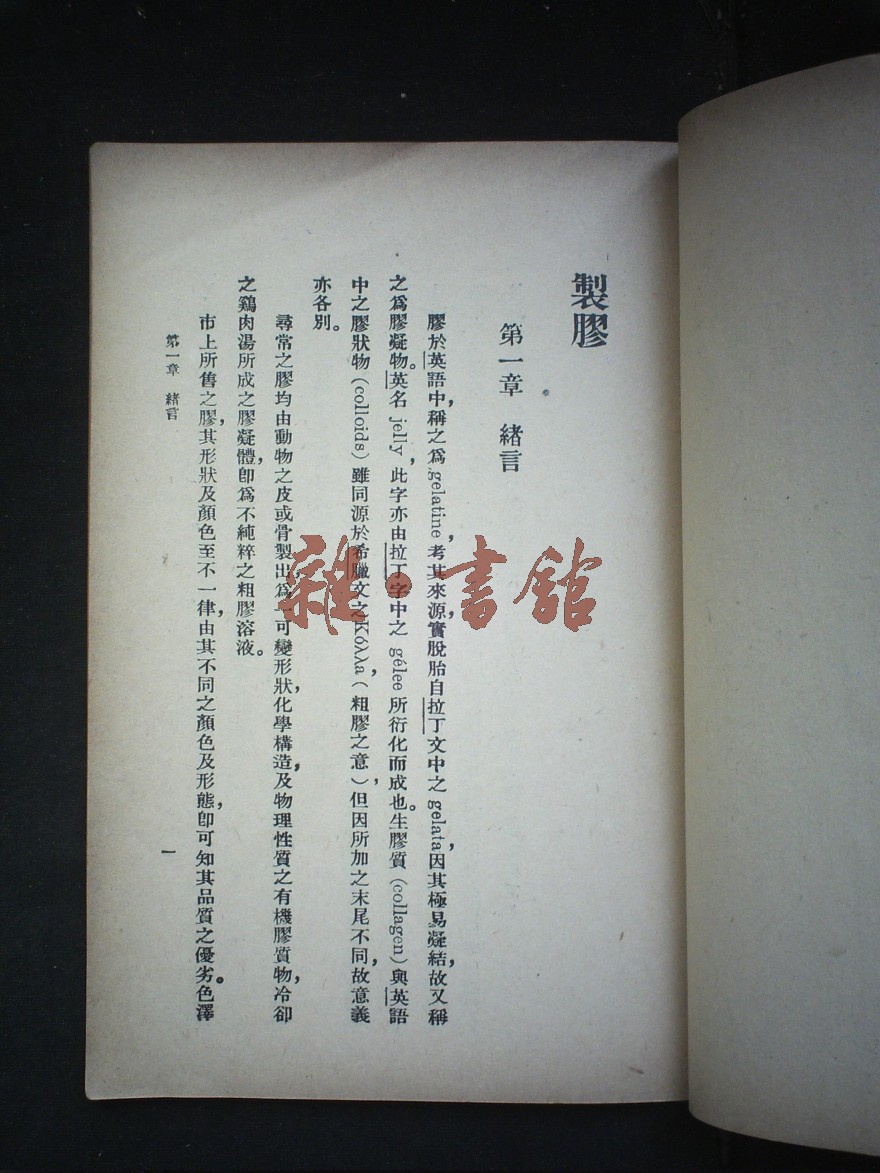 製膠
第一章 緒言
膠於英語中,稱之爲gelatine,考其來源,實脫胎自拉丁文中之gelata,因其極易凝結,故又稱
之爲膠凝物。英名jelly,此字亦由拉丁字中之gélee所衍化而成也。生膠質(collagen)與英語
中之膠狀物(colloids)雖同源於希臘文之Κόλλa(粗膠之意),但因所加之末尾不同,故意義
亦各別。
尋常之膠均由動物之皮或骨製出,爲一可變形狀,化學構造,及物理性質之有機膠質物,冷卻
之鷄肉湯所成之膠凝體,卽爲不純粹之粗膠溶液。
市上所售之膠,其形狀及顏色至不一律,由其不同之顏色及形態,卽可知其品質之優劣。色澤
第一章 緒言
一
雜·書館